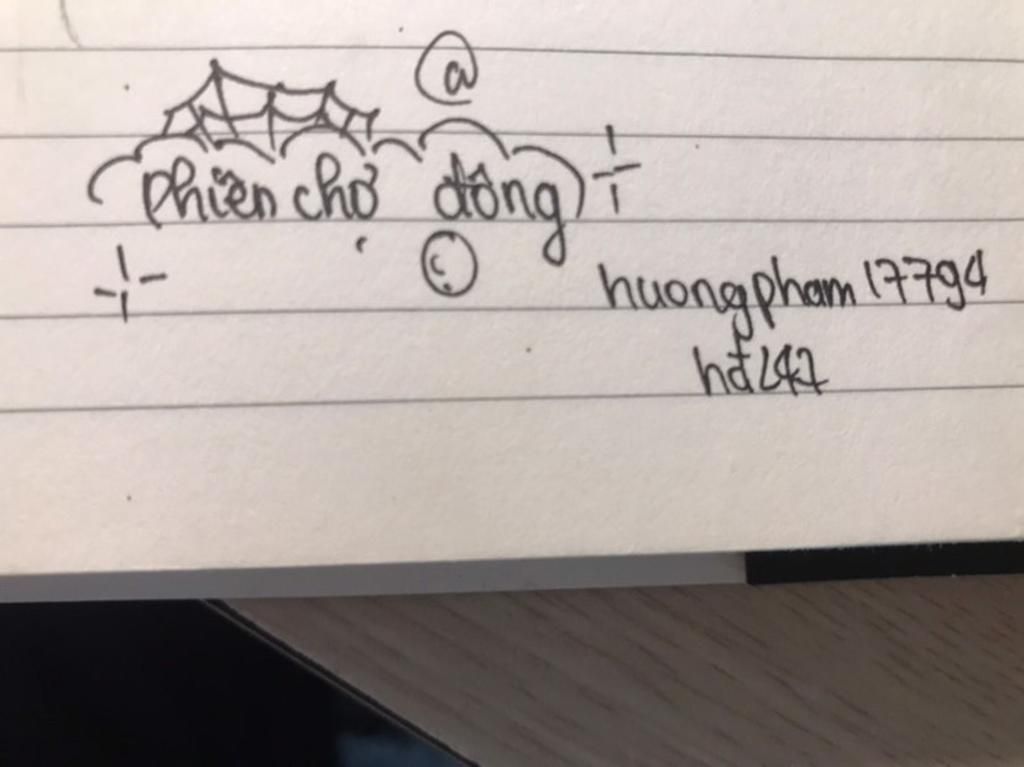 @
phiên chợ đông
huongpham17794
hđ247